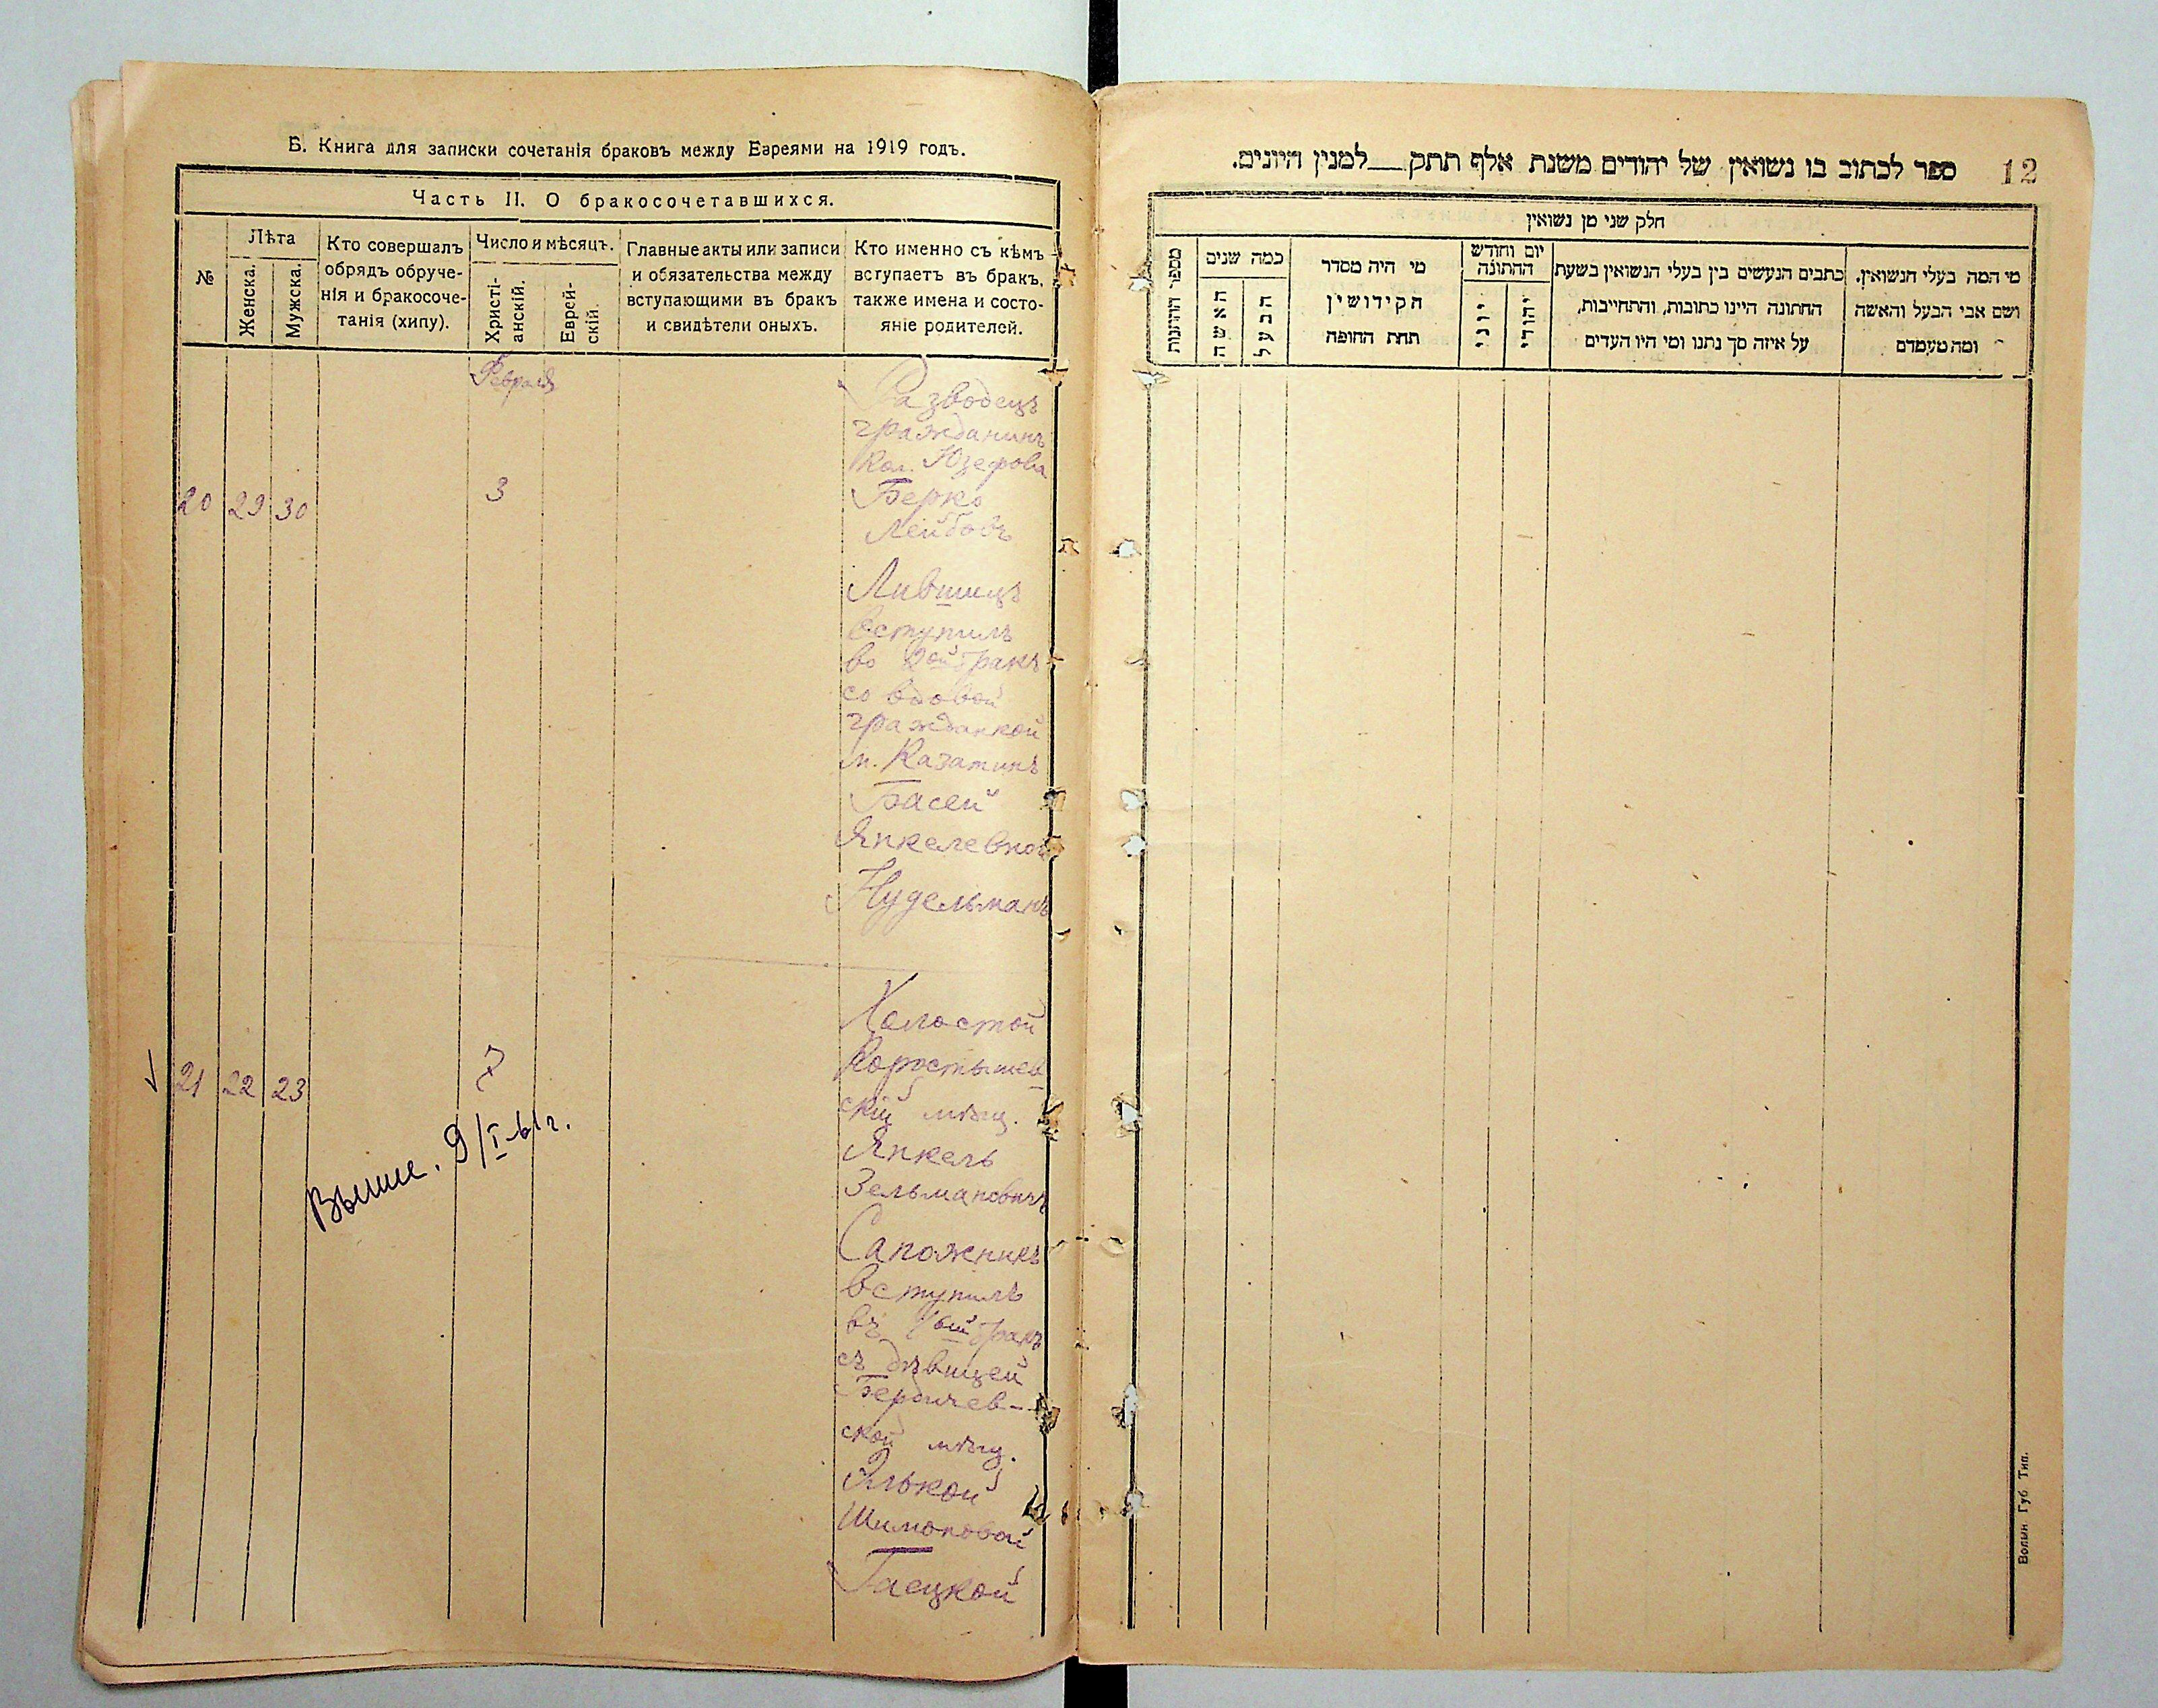 Б. Книга для записки сочетанія браковъ между Евреями на 1919 годъ.
Часть II. О бракосочетавшихся.
№
Лѣта
Женска.
Мужска.
Кто совершалъ
обрядъ обруче-
нія и бракосоче-
танія (хипу).
Число и мѣсяцъ.
Христі-
анскій.
Еврей-
скій.
Главные акты или записи
и обязательства между
вступающими въ бракъ
и свидѣтели оныхъ.
Кто именно съ кѣмъ
вступаетъ въ бракъ,
также имена и состо-
яніе родителей.
Февраль
20 29 30 3
Разводецъ
гражданинъ
кол. Юзефова
Берко
Лейбовъ
Лившицъ
вступилъ
во 2ой бракъ
со вдовой
гражданкой
м. Казатинъ
Басей
Янкелевной
Нудельманъ
21 22 23 7
Холостой
Коростышев
скій мѣщ.
Янкель
Зельмановичъ
Сапожникъ
вступилъ
въ 1ый бракъ
съ дѣвицей
Бердичев-
ской мѣщ.
Элькой
Шимоновой
Гаецкой
9/I-61г.
ספר לכתוב בו נשואין של יהודים משנת אלף תתק__למנין היונים.
12
חלק שני מן נשואין
מי המה בעלי הנשואין.
ושם אבי הבעל והאשה
ומה מעמדם
כתבים הנעשים בין בעלי הנשואין בשעת
החתונה היינו כתובות, והתחייבות,
על איזה סך נתנו ומי היו העדים
יום וחודש
החתונה
יהודי
יוני
מי היה מסדר
הקידושין
תחת החופה
כמה שנים
הבעל
האשה
מספר הזיווגות
Волын. Губ. Тип.